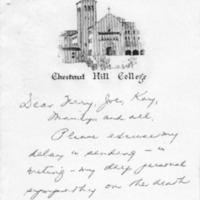 Chestnut Hill College
Dear Terry, Joe, Kay,
Maury, and all,
Please excuse my
delay in sending - in
writing - my deep personal
sympathy on the death